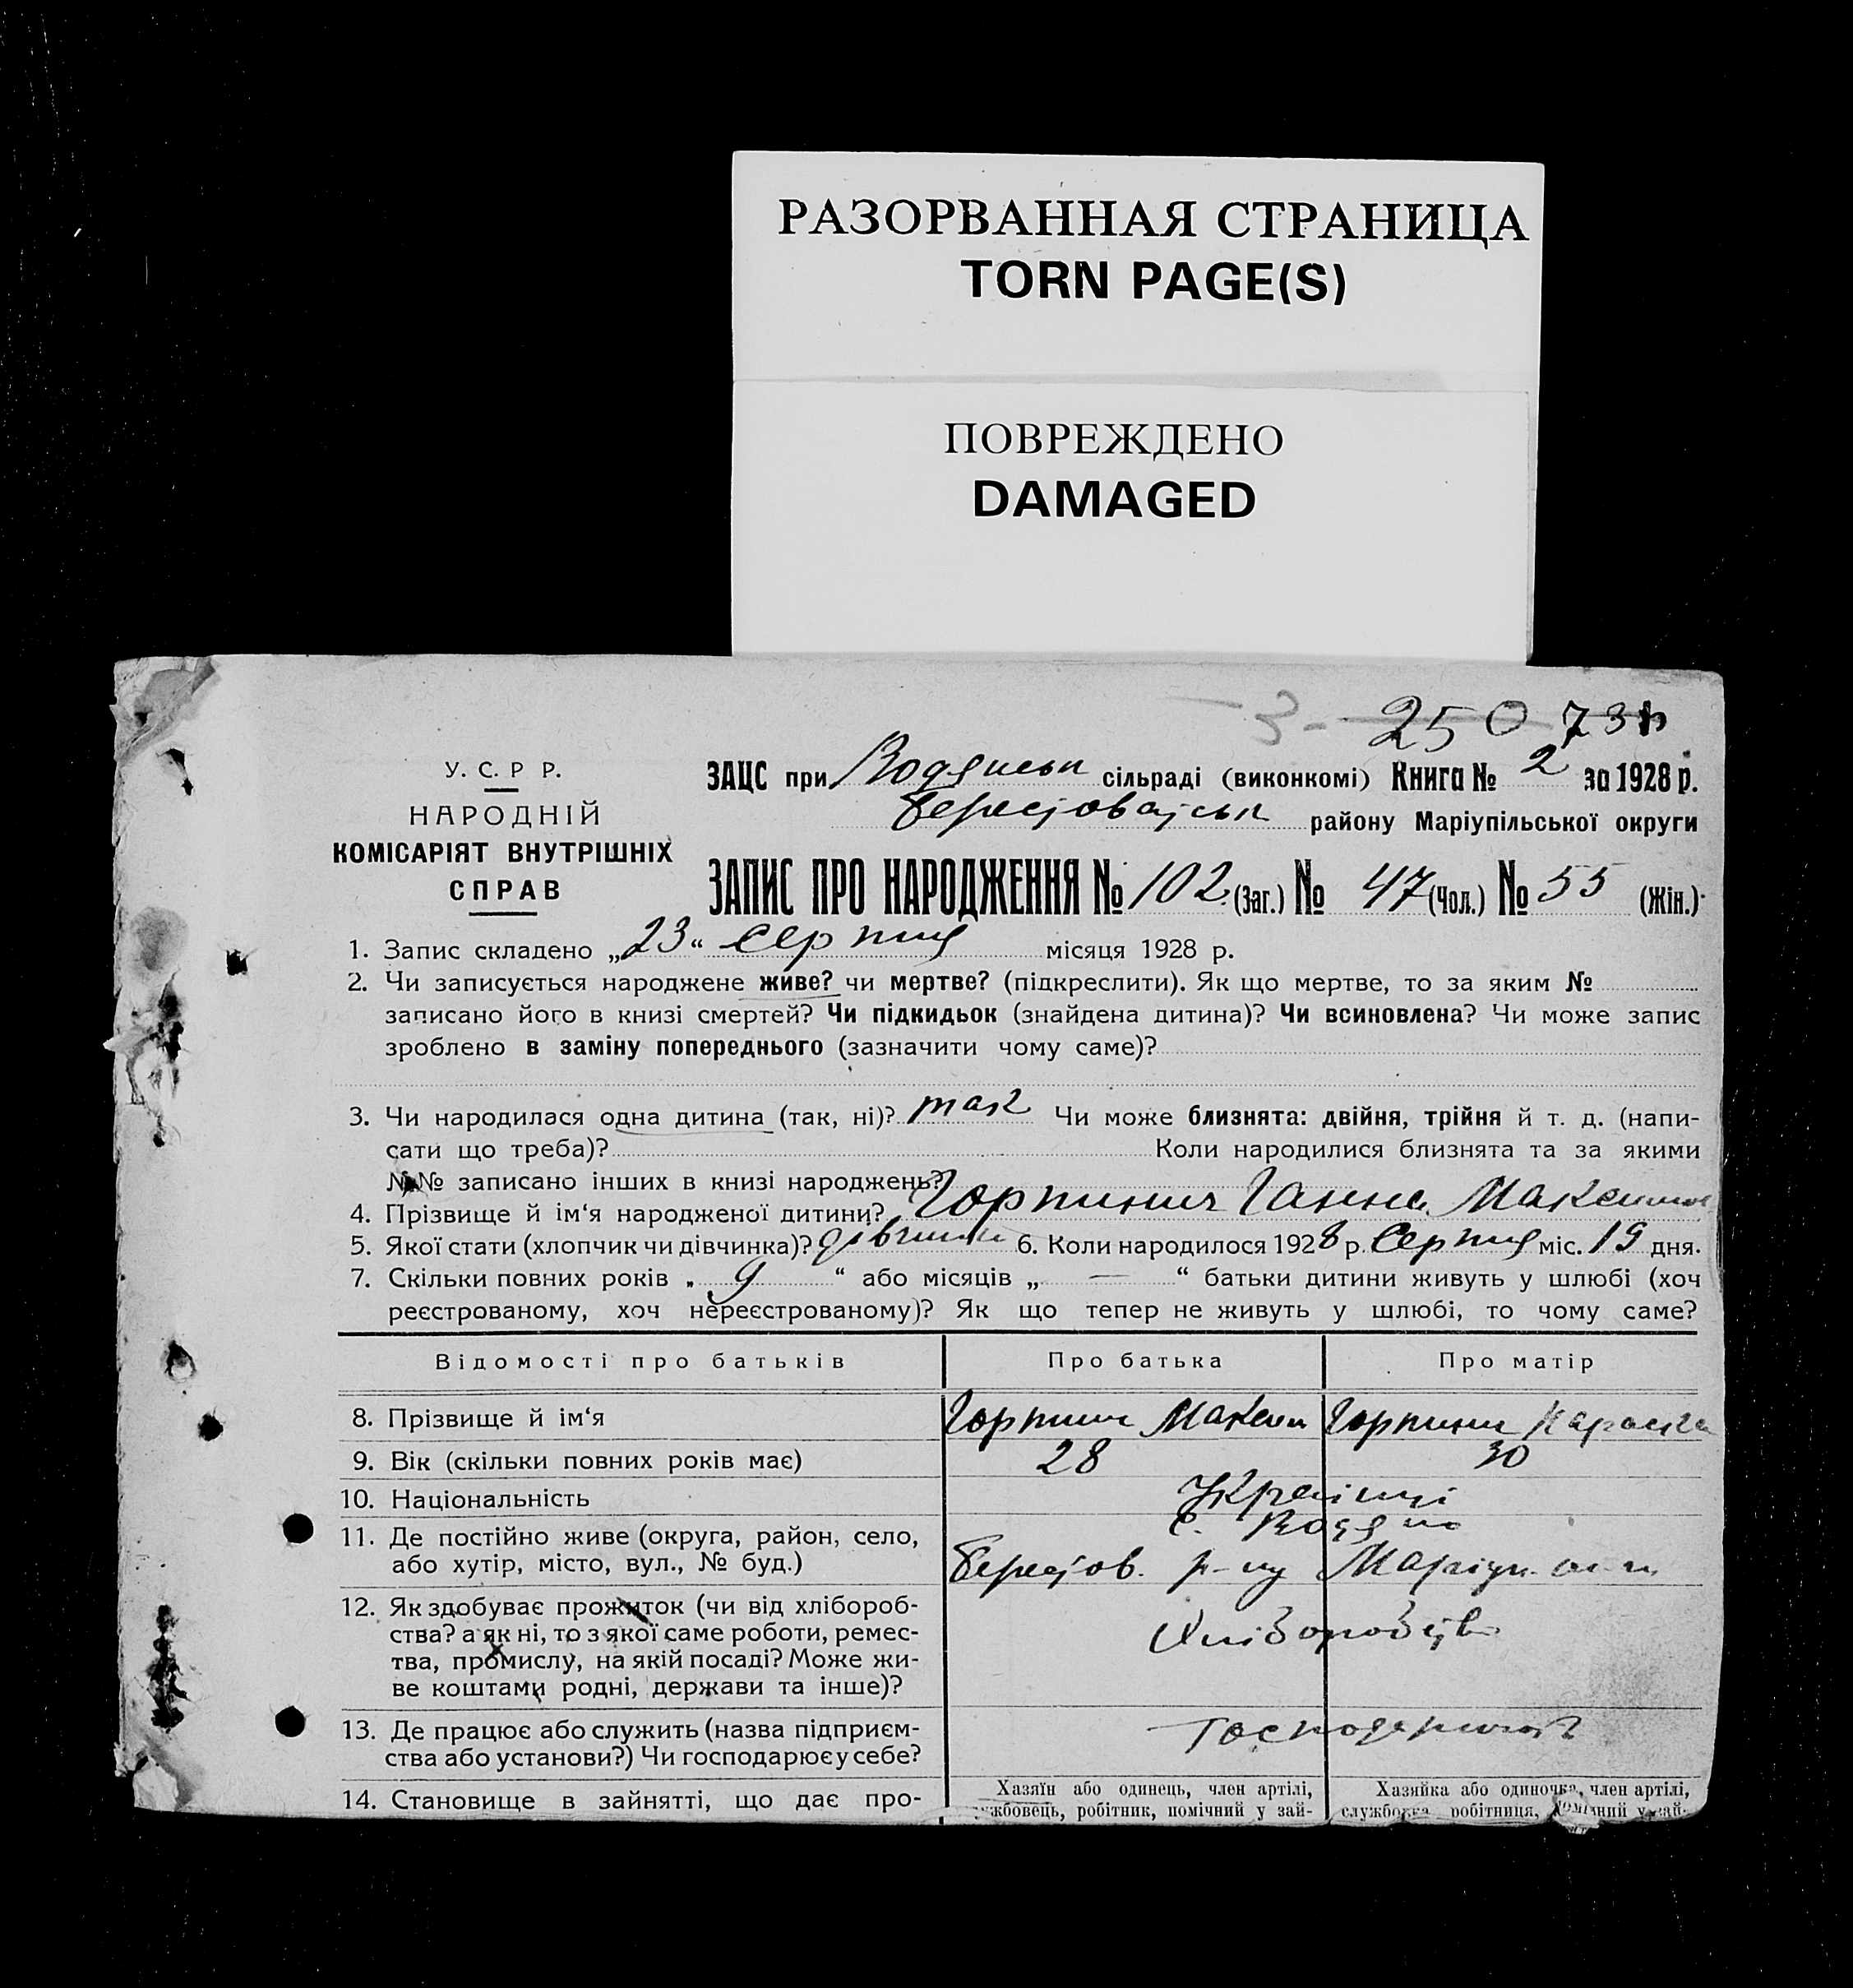 РАЗОРВАННАЯ СТРАНИЦА
TORN PAGE(S)
ПОВРЕЖДЕНО
DAMAGED
3 - 250
У. С. Р Р.
НАРОДНІЙ
КОМІСАРІЯТ ВНУТРІШНІХ
СПРАВ
ЗАЦС при Водянськ сільраді (виконкомі) Книга № 2 за 1928 р.
району Маріупільської округи
ЗАПИС ПРО НАРОДЖЕННЯ № 102 (Заг.) № 47 (Чол.) № 55 (Жін.)
1. Запис складено „23“ серпня місяця 1928 р.
2. Чи записується народжене живе? чи мертве? (підкреслити). Як що мертве, то за яким №
записано його в книзі смертей? Чи підкидьок (знайдена дитина)? Чи всиновлена? Чи може запис
зроблено в заміну попереднього (зазначити чому саме)?
3. Чи народилася одна дитина (так, ні)? так Чи може близнята: двійня, трійня й т. д. (напи-
сати що треба)? Коли народилися близнята та за якими
№№ записано інших в книзі народжень?
4. Прізвище й ім‘я народженої дитини? Горпинич Ганна Максимов
5. Якої стати (хлопчик чи дівчинка)? дівчинка 6. Коли народилося 1928 р. Серпня міс. 19 дня.
7. Скільки повних років „ 9 “ або місяців „ — “ батьки дитини живуть у шлюбі (хоч
реєстрованому, хоч нереєстрованому)? Як що тепер не живуть у шлюбі, то чому саме?
Відомості про батьків Про батька Про матір
8. Прізвище й ім‘я Горпинич Максим Горпинич
9. Вік (скільки повних років має) 28 30
10. Національність Українці
11. Де постійно живе (округа, район, село, с. Водяно
або хутір, місто, вул., № буд.) Берестов. р-ну Маріуп.
12. Як здобуває прожиток (чи від хлібороб-
ства? а як ні, то з якої саме роботи, ремес- Хліборобство
тва, промислу, на якій посаді? Може жи-
ве коштами родні, держави та інше)?
13. Де працює або служить (назва підприєм-
ства або установи?) Чи господарює у себе?
14. Становище в зайнятті, що дає про- Хазяїн або одинець, член артілі, Хазяйка або одиночка, член артілі,
службовець, робітник, помічний у зай- службовка робітниця, помічний у зай-